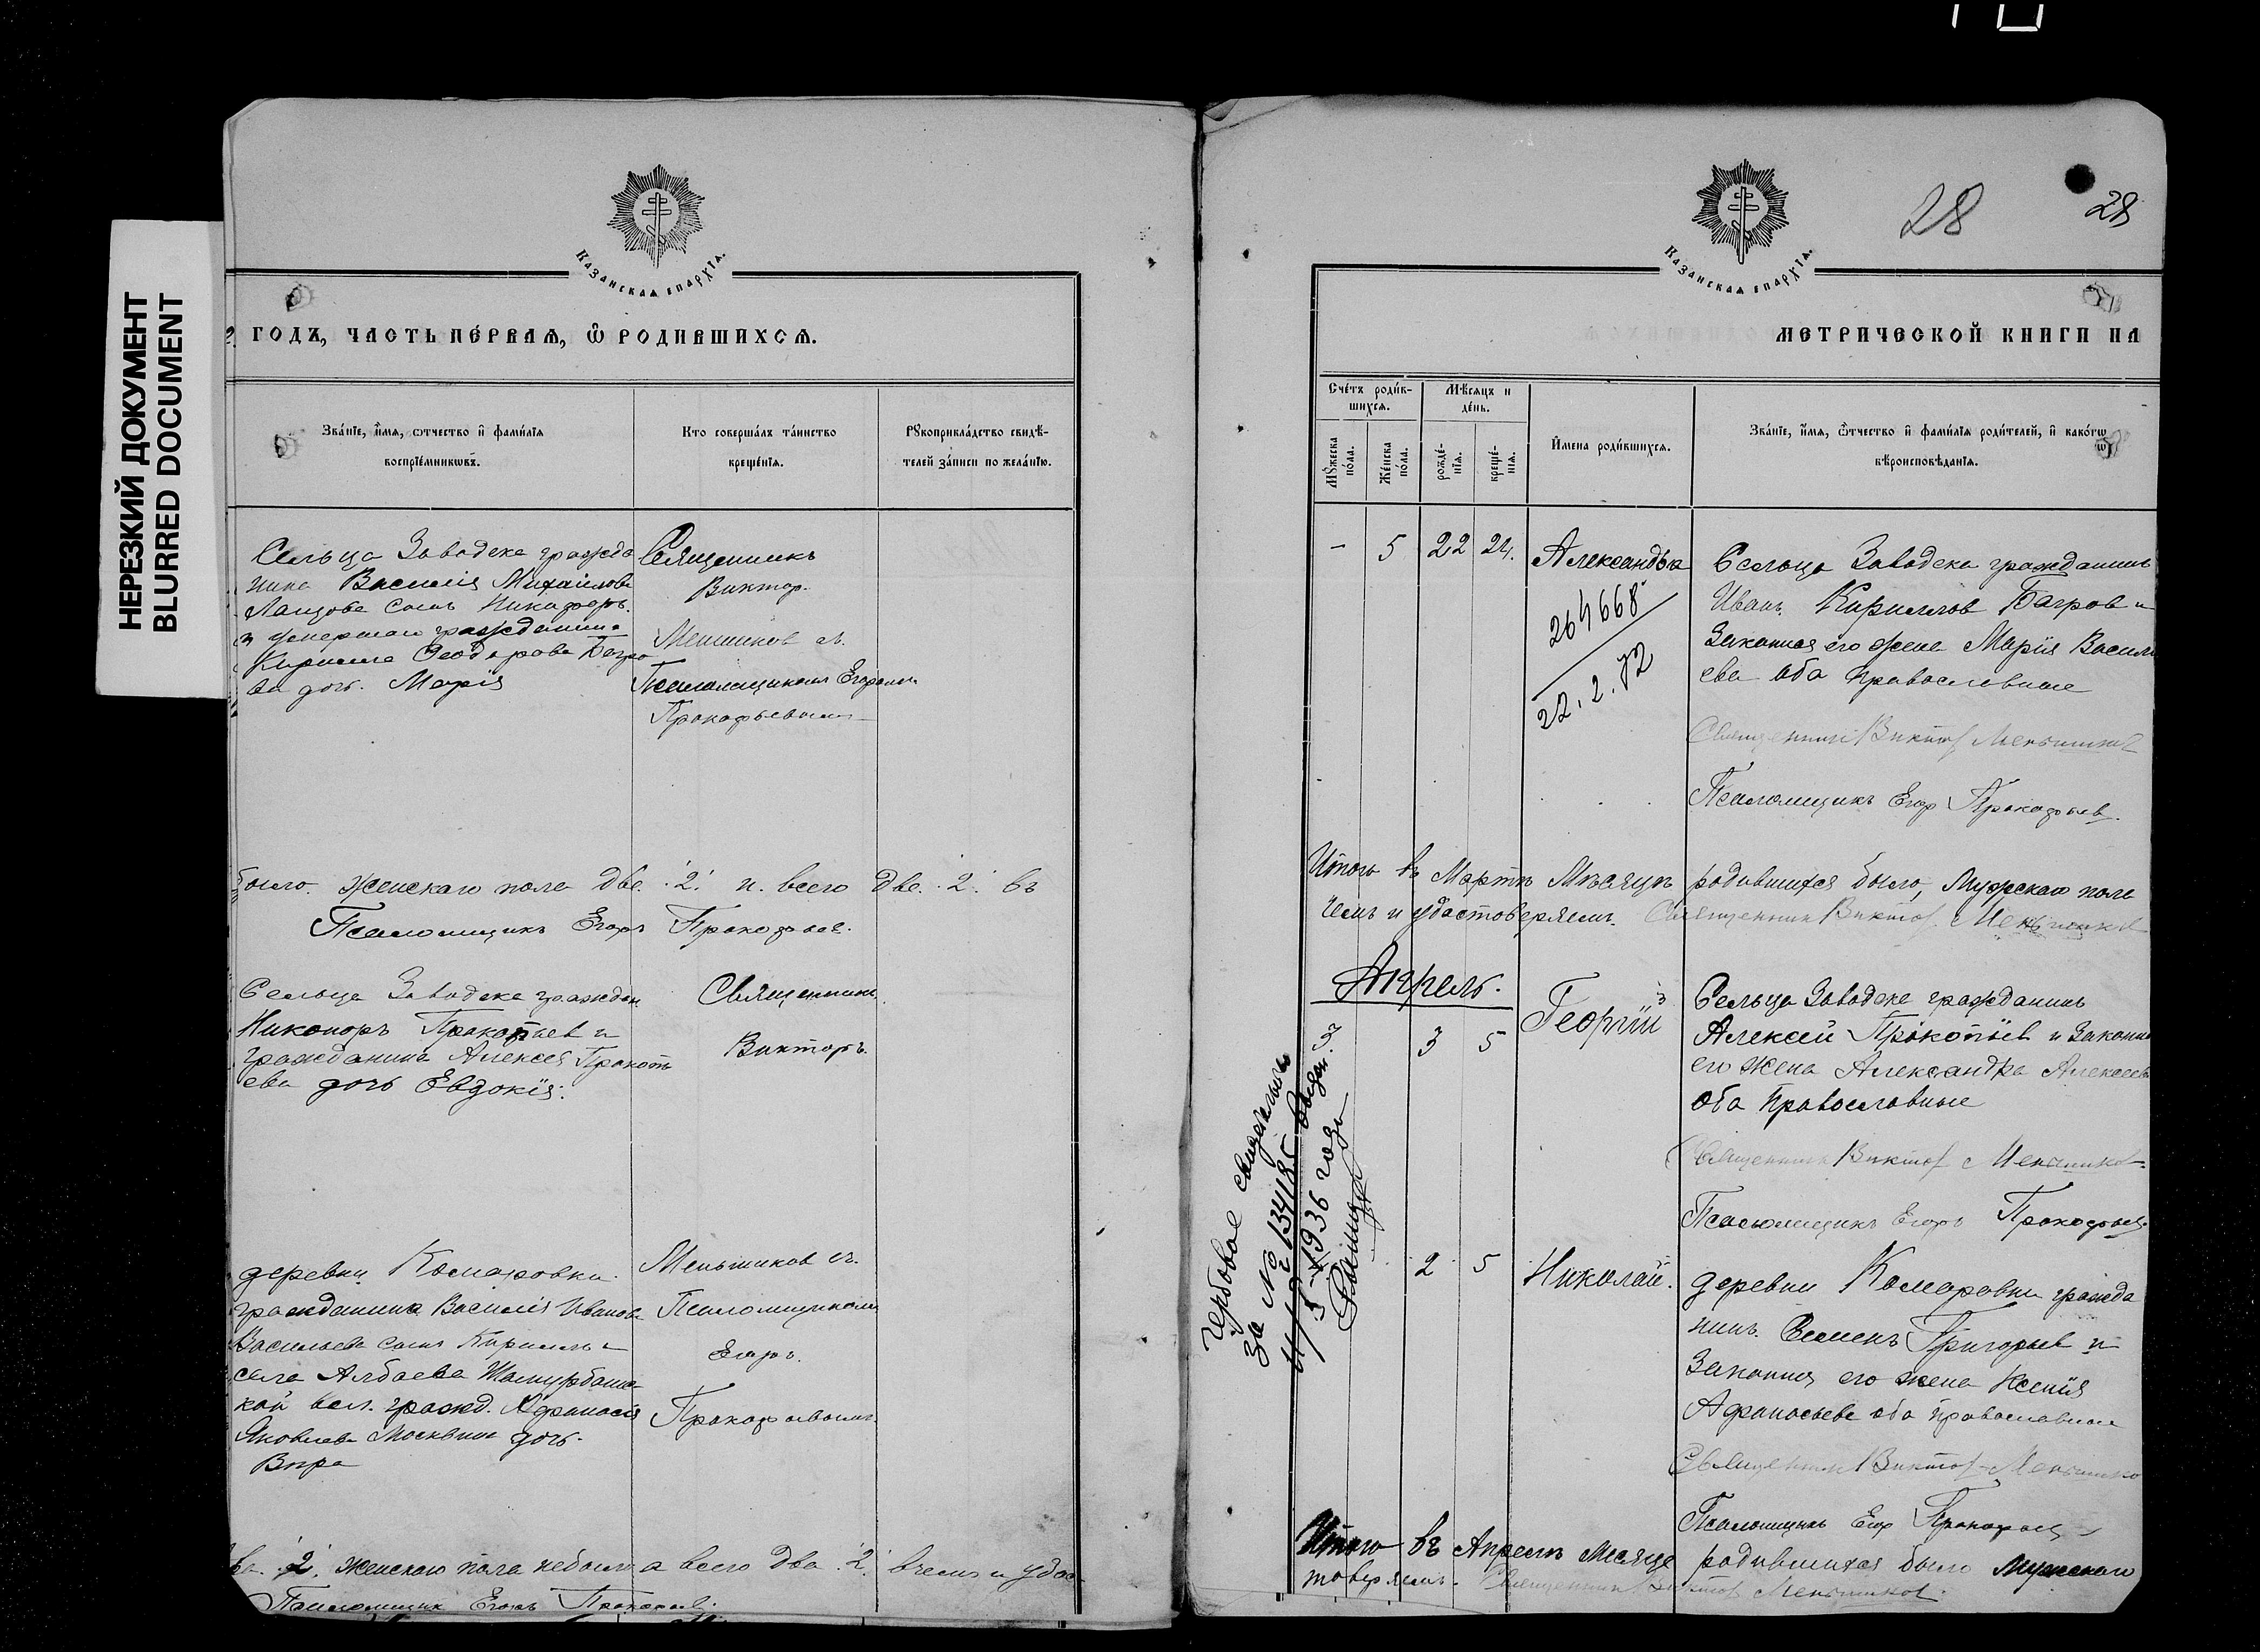 НЕРЕЗКИЙ ДОКУМЕНТ
BLURRED DOCUMENT
Казанская епархїа.
ГОДЪ, ЧАСТЬ ПЕ́РВАЯ, Ѽ РОДИВШИХСЯ.
Зва́нїе, и҆́мя, ѻтчество и҆ фами́лїя
воспрїе́мниковъ.
Кто совершалъ та́инство
креще́нїя.
Рꙋкоприкла́дство свидѣ́-
телей за́писи по жела́нїю.
Сельца Заводска гражда
нина Василія Михаилова
сынъ Никифоръ.
и умершаго гражданина
Кирилла Ѳеодорова Багро
ва дочь Марія
Священникъ
Виктор.
Меншиков съ
Псаломщикомъ Егоромъ
Прокофьевымъ
было женскаго пола две 2. и всего две 2. въ
Псаломщикъ Егоръ Прокофьев.
Сельца Заводска граждан
Никоноръ Прокопьев и
гражданина Алексея Прокопь
ева дочь Евдокія.
Священник
Викторъ.
деревни Комаровки
гражданина Василія Иванова
Васильева сынъ Кириллъ и
села Албаева
кой вол. гражд. Афанасія
Яковлева Москвина дочь
Вѣра
Меньшиков съ
Псаломщикомъ
Егоръ.
Прокофьевымъ
ва 2. женскаго пола небыло а всего два 2. в чемъ и удос
Псаломщик Егоръ Прокофьев.
28
28
Казанская епархїа.
МЕТРИЧЕСКОЙ КНИГИ НА
Сче́тъ роди́в-
шихся.
Мѣ́сяцъ и
де́нь.
Мꙋ́жеска
по́ла.
Же́нска
по́ла.
рожде́-
нїя.
креще́-
нїя.
И҆мена роди́вшихся.
Зва́нїе, и҆́мя, ѻ҆́тчество и҆ фами́лїя роди́телей, и҆ како́гѡ
вѣроисповѣ́данїя.
- 5 22 24. Александра
264668
22.2.72
Сельца Заводска гражданинъ
Иванъ Кириллов Багров и
Законная его жена Марія Васили
ева оба православные
Священник Виктор Меньшиков
Псаломщикъ Егор Прокофьев.
Итого въ Мартѣ Мѣсяцѣ родившихся было, Мужскаго пола
чемъ и удостоверяемъ. Священник Виктор Меньшиков
Апрель.
3 3 5 Георгій
Сельца Заводска гражданинъ
Алексей Прокопіев и Законна
его жена Александра Алексеева
оба православные
Священник Виктор Меньшиков
Псаломщикъ Егоръ Прокофьев
Гербовое свидетельство
за № 134185 выдан.
1936 года
2 5 Николай.
деревни Комаровки гражда
нинъ Семенъ Григорьев и
Законная его жена Ксенія
Афанасьева оба православные
Священник Виктор Меньшико
Псаломщикъ Егор Прокофьев
Итого въ Апреле Месяце родившихся было Мужскаго
товеряемъ. Священник Виктор Меньшиков.